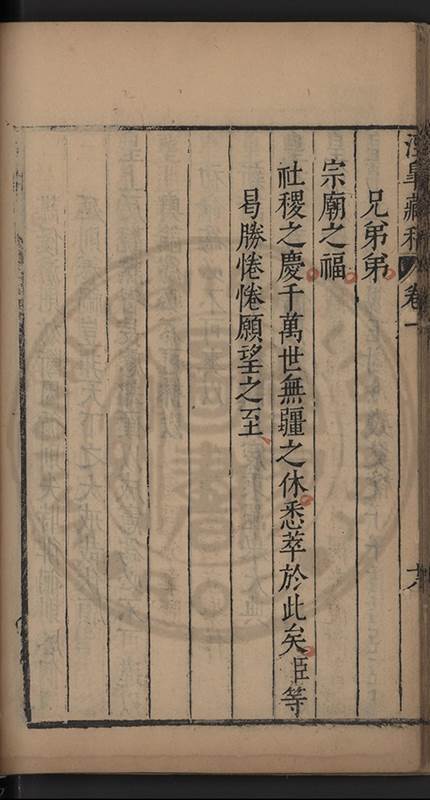 兄弟弟
宗廟之福
社稷之慶千萬世無疆之休悉萃於此矣臣等
曷勝惓惓願望之至
皐藏稿 卷一